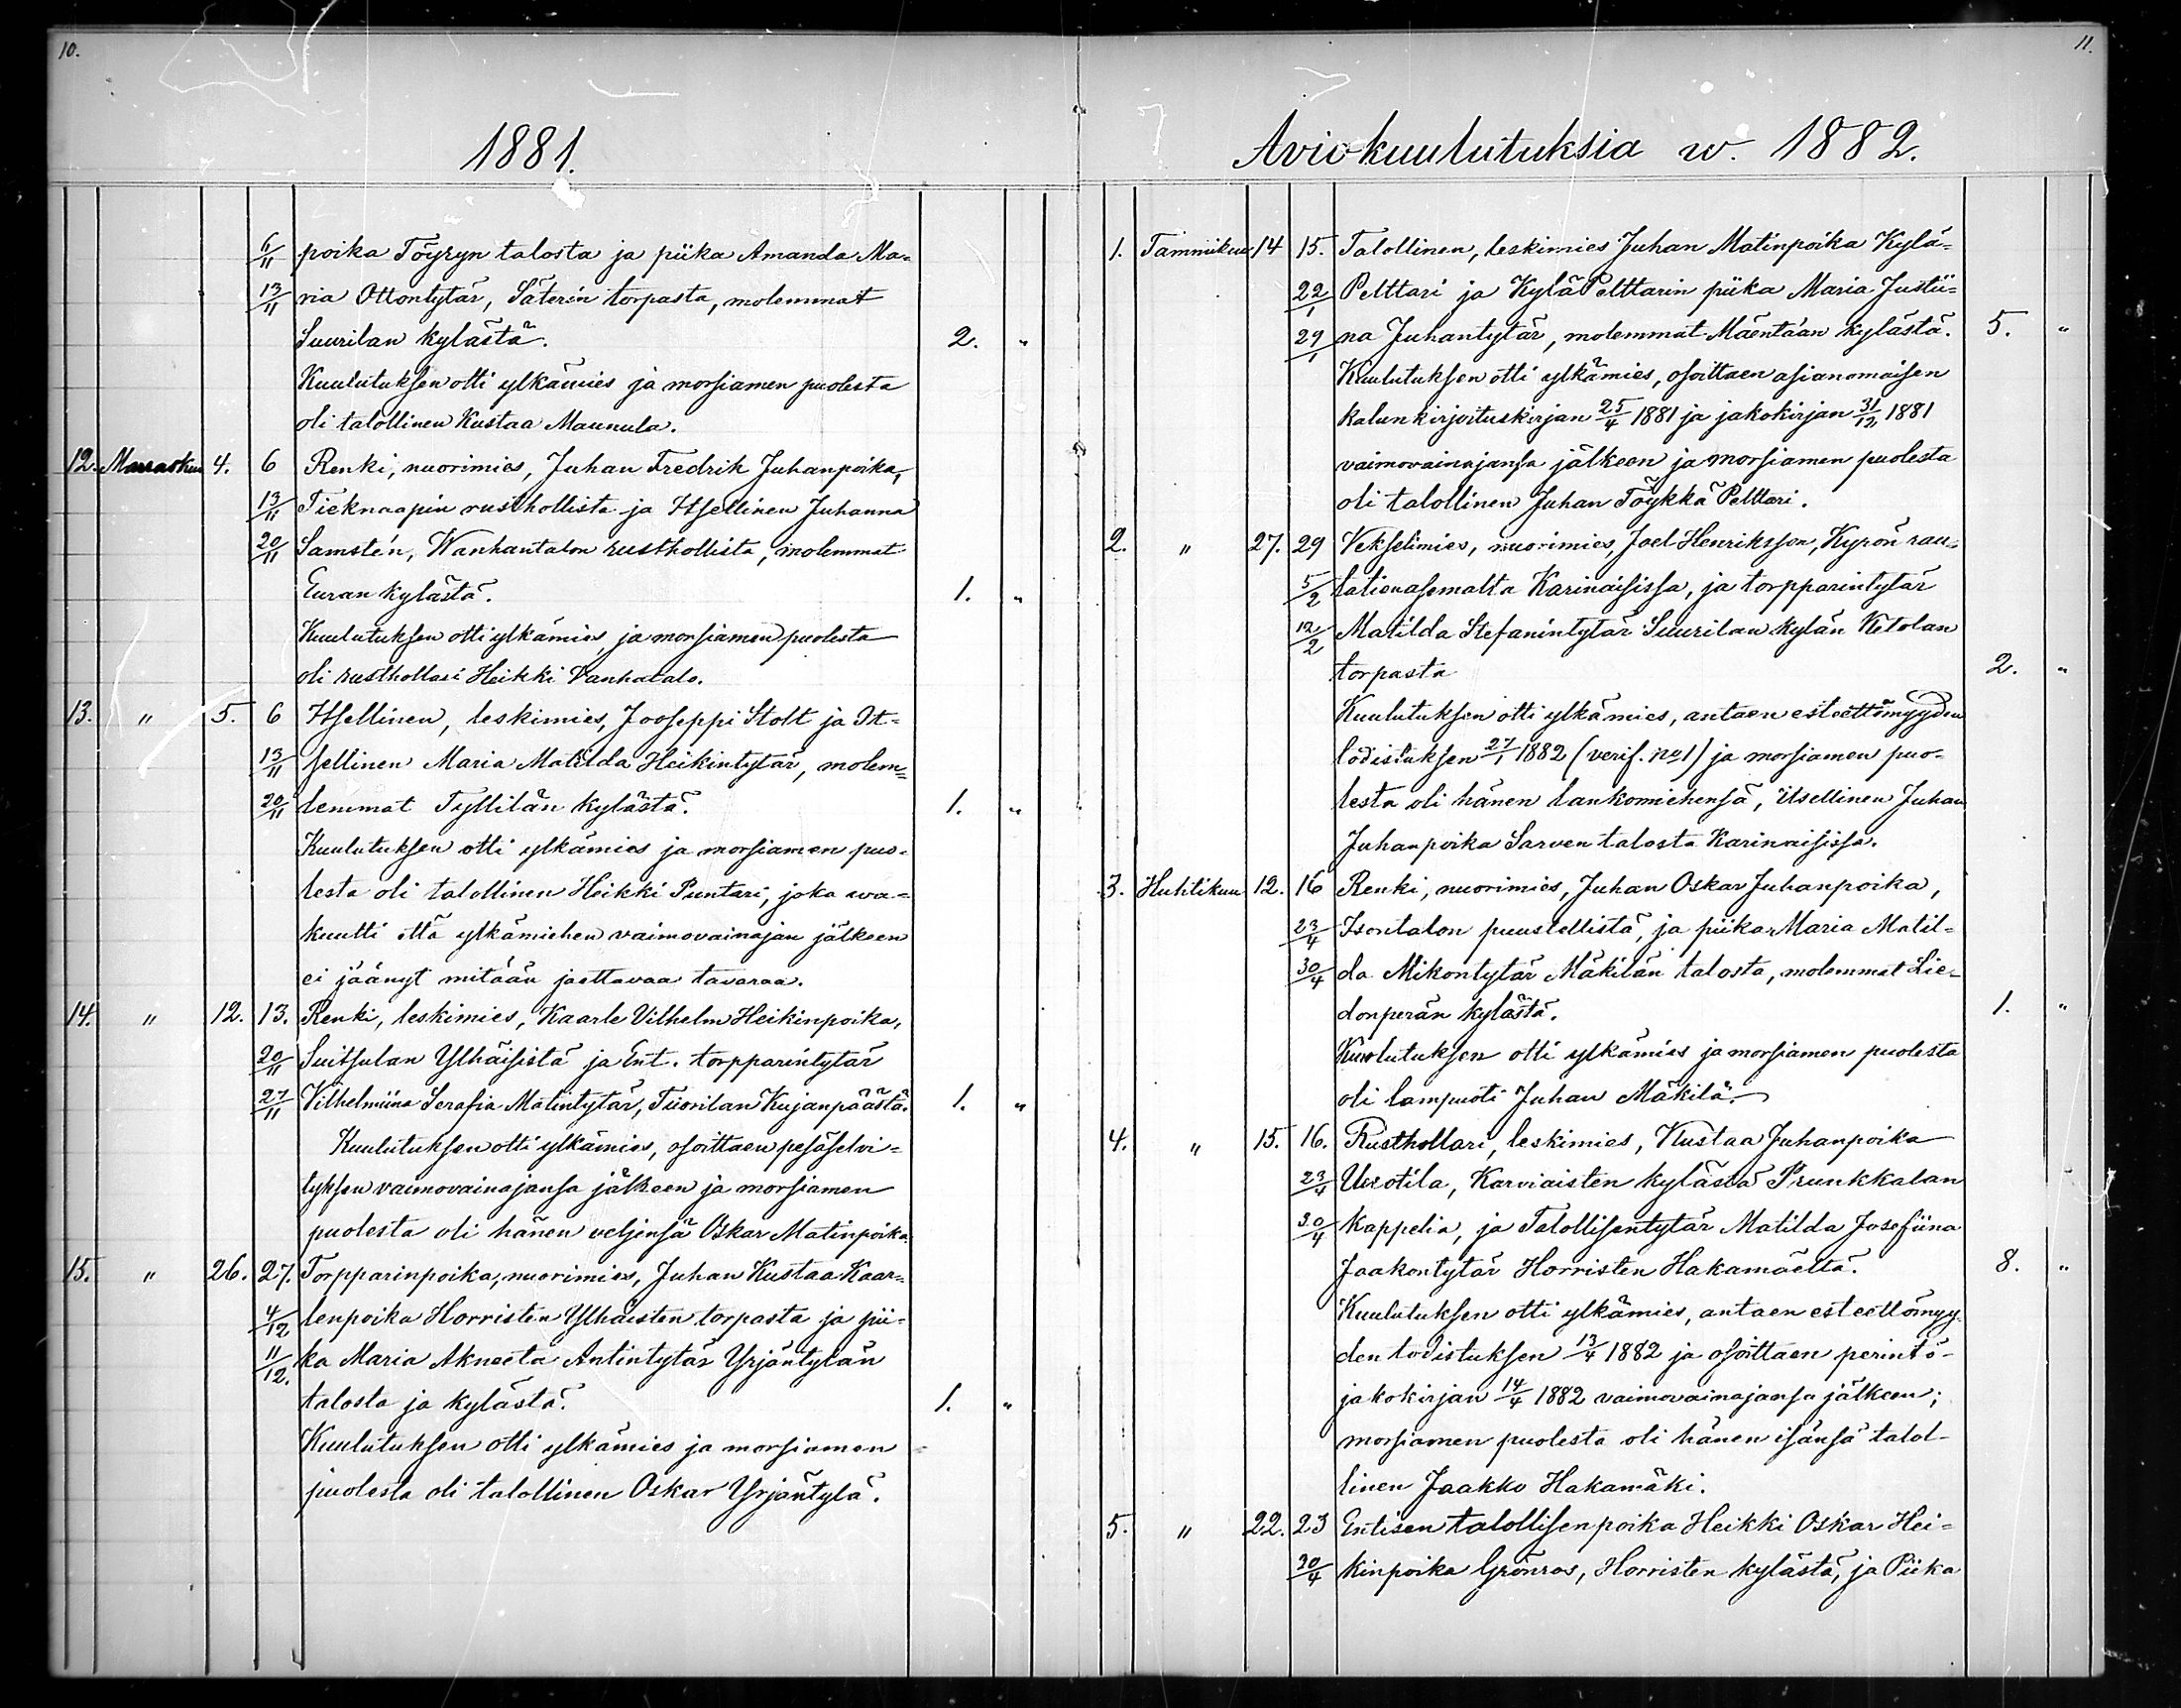 10.
1881.
6/11 poika Töyryn talosta ja piika Amanda Ma=
13/11 ria Ottontytär, Säterin torpasta, molemmat
Suurilan kylästä. 2. "
Kuulutuksen otti ylkämies ja morsiamen puolesta
oli talollinen Kustaa Maunula.
12. Marraskuu 4. 6 Renki, nuorimies, Juhan Fredrik Juhanpoika,
13/11 Tieknaapin rusthollista ja Itsellinen Juhanna
20/11 Samstén, Wanhantalon rusthollista, molemmat
Euran kylästä. 1. "
Kuulutuksen otti ylkämies, ja morsiamen puolesta
oli rusthollari Heikki Vanhatalo.
13. " 5. 6 Itsellinen, leskimies, Jooseppi Stolt ja It=
13/11 sellinen Maria Matilda Heikintytär, molem=
20/11 lemmat Tyllilän kylästä. 1. "
Kuulutuksen otti ylkämies ja morsiamen puo=
lesta oli talollinen Heikki Puntari, joka wa=
kuutti että ylkämiehen vaimovainajan jälkeen
ei jäänyt mitään jaettavaa tavaraa.
14. " 12. 13. Renki, leskimies, Kaarle Vilhelm Heikinpoika,
20/11 Suitsulan Ylhäisistä ja Ent. torpparintytär
27/11 Vilhelmiina Serafia Matintytär, Tuorilan Kujanpäästä. 1. "
Kuulutuksen otti ylkämies, osoittaen pesäselvi=
tyksen vaimovainajansa jälkeen ja morsiamen
puolesta oli hänen veljensä Oskar Matinpoika.
15. " 26. 27. Torpparinpoika, nuorimies, Juhan Kustaa Kaar=
4/12 lenpoika Horristen Ylhäisten torpasta ja pii=
11/12. ka Maria Akneeta Antintytär Yrjäntylän
talosta ja kylästä. 1. "
Kuulutuksen otti ylkämies ja morsiamen
puolesta oli talollinen Oskar Yrjäntylä.
11.
Aviokuulutuksia w. 1882.
1. Tammikuu 14 15. Talollinen, leskimies Juhan Matinpoika Kylä=
22/1 Pelttari ja KyläPelttarin piika Maria Justii=
29/1 na Juhantytär, molemmat Mäentaan kylästä. 5. "
Kuulutuksen otti ylkämies, osoittaen asianomaisen
kalunkirjoituskirjan 25/4 1881 ja jakokirjan 31/12 1881
vaimovainajansa jälkeen ja morsiamen puolesta
oli talollinen Juhan Töykkä Pelttari.
2. " 27. 29 Vekselimies, nuorimies, Joel Henriksson, Kyrön rau=
5/2 tatienasemalta Karinaisissa, ja torpparintytär
12/2 Matilda Stefanintytär Suurilan kylän Ketolan
torpasta 2. "
Kuulutuksen otti ylkämies, antaen esteettömyyden
todistuksen 27/1 1882 (verif. No 1) ja morsiamen puo-
lesta oli hänen lankomiehensä, itsellinen Juhan
Juhanpoika Sarven talosta Karinaisissa.
3. Huhtikuu 12. 16 Renki, nuorimies, Juhan Oskar Juhanpoika,
23/4 Isontalon puustellista, ja piika Maria Matil=
30/4 da Mikontytär Mäkilän talosta, molemmat Lie-
donperän kylästä. 1. "
Kuulutuksen otti ylkämies ja morsiamen puolesta
oli lampuoti Juhan Mäkilä.
4. " 15. 16. Rusthollari, leskimies, Kustaa Juhanpoika
23/4 Uusotila, Karviaisten kylästä Prunkkalan
30/4 kappelia, ja Talollisentytär Matilda Josefiina
Jaakontytär Horristen Hakamäeltä. 8. "
Kuulutuksen otti ylkämies, antaen esteettömyy
den todistuksen 13/4 1882 ja osoittaen perintö-
jakokirjan 14/4 1882 vaimovainajansa jälkeen;
morsiamen puolesta oli hänen isänsä talol-
linen Jaakko Hakamäki.
5. " 22. 23 Entisen talollisenpoika Heikki Oskar Hei=
30/4 kinpoika Grönros, Horristen kylästä, ja Piika